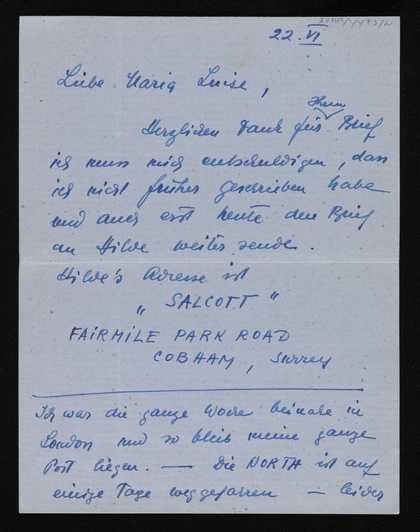 22. VI
Liebe Maria Luise,
Ihren
Herzlichen Dank für Brief
ich muss mich entschuldigen, dass
ich nicht früher geschrieben habe
und auch erst heute den Brief
an Hilde weiter sende.
Hilde's Adresse ist
"SALCOTT"
FAIRMILE PARK ROAD
COBHAM, Surrey
Ich war die ganze Woche beinahe in
London und so blieb meine ganze
Post liegen. — Die NORTH ist auf
einige Tage weggefahren — leider